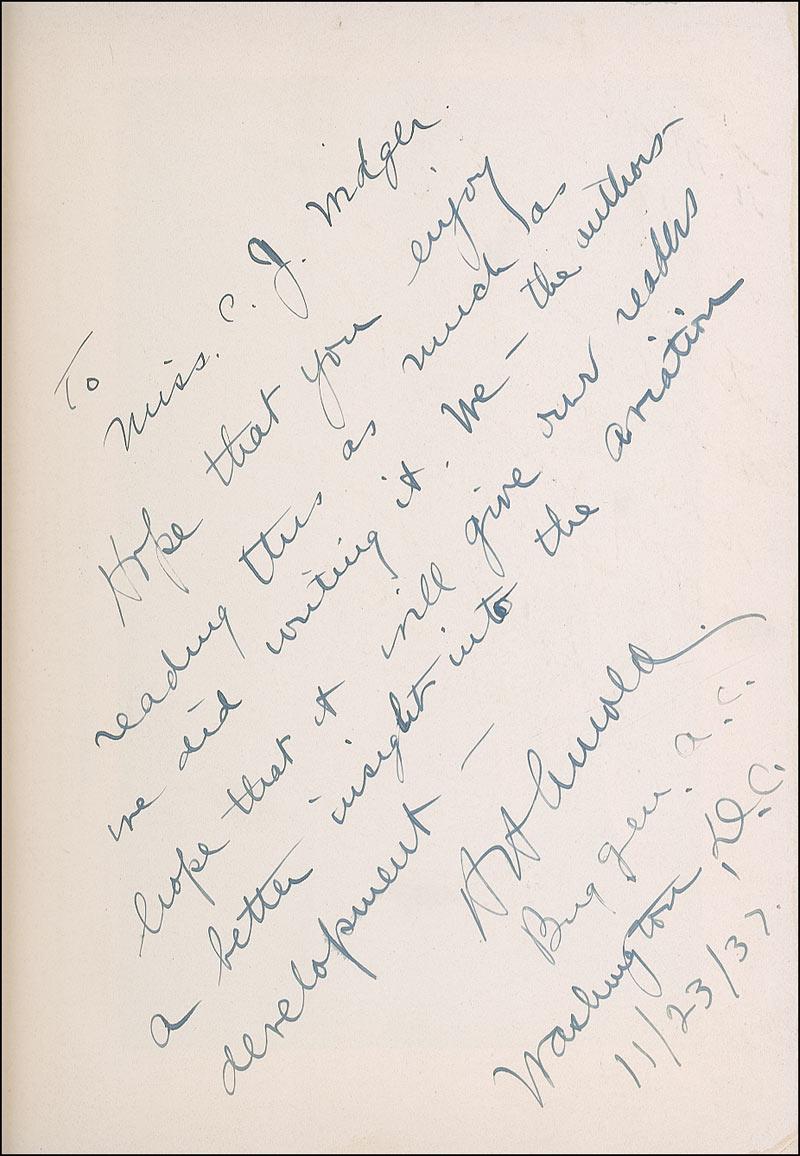 To
Miss. C. J.
Hope that you enjoy
reading this as much as
we did writing it. We – the authors –
hope that it will give our readers
a better insight into the aviation
development –
HH Arnold.
Brig gen. a.c.
Washington, D.C.
11/23/37.